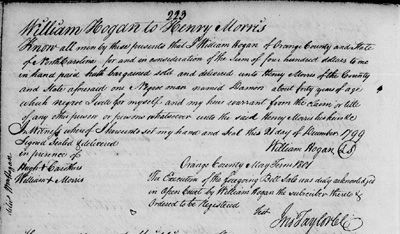 223
William Hogan to Henry Morris
Know all men by these presents that I William Hogan of Orange County and State
of North Carolina for and in consideration of the Sum of four hundred dollars to me
in hand paid hath bargained sold and delivered unto Henry Morris of the County
and State aforesaid one Negroe man named Ramon about forty years of age
which negroe I will for myself and my heirs warrant from the claim or title
of any other person or persons whatsoever unto the said Henry Morris his heirs &c
In Witness whereof I hereunto set my hand and Seal this 21 day of December 1799
Signed Sealed & delivered
William Hogan (LS)
in presence of
Hugh Caruthers
William + Morris
Orange County May Term 1801
The Execution of the foregoing Bill Sale was duly acknowledged
in Open Court by William Hogan the subscriber thereto &
Ordered to be Registered
Test
Jno Taylor CC